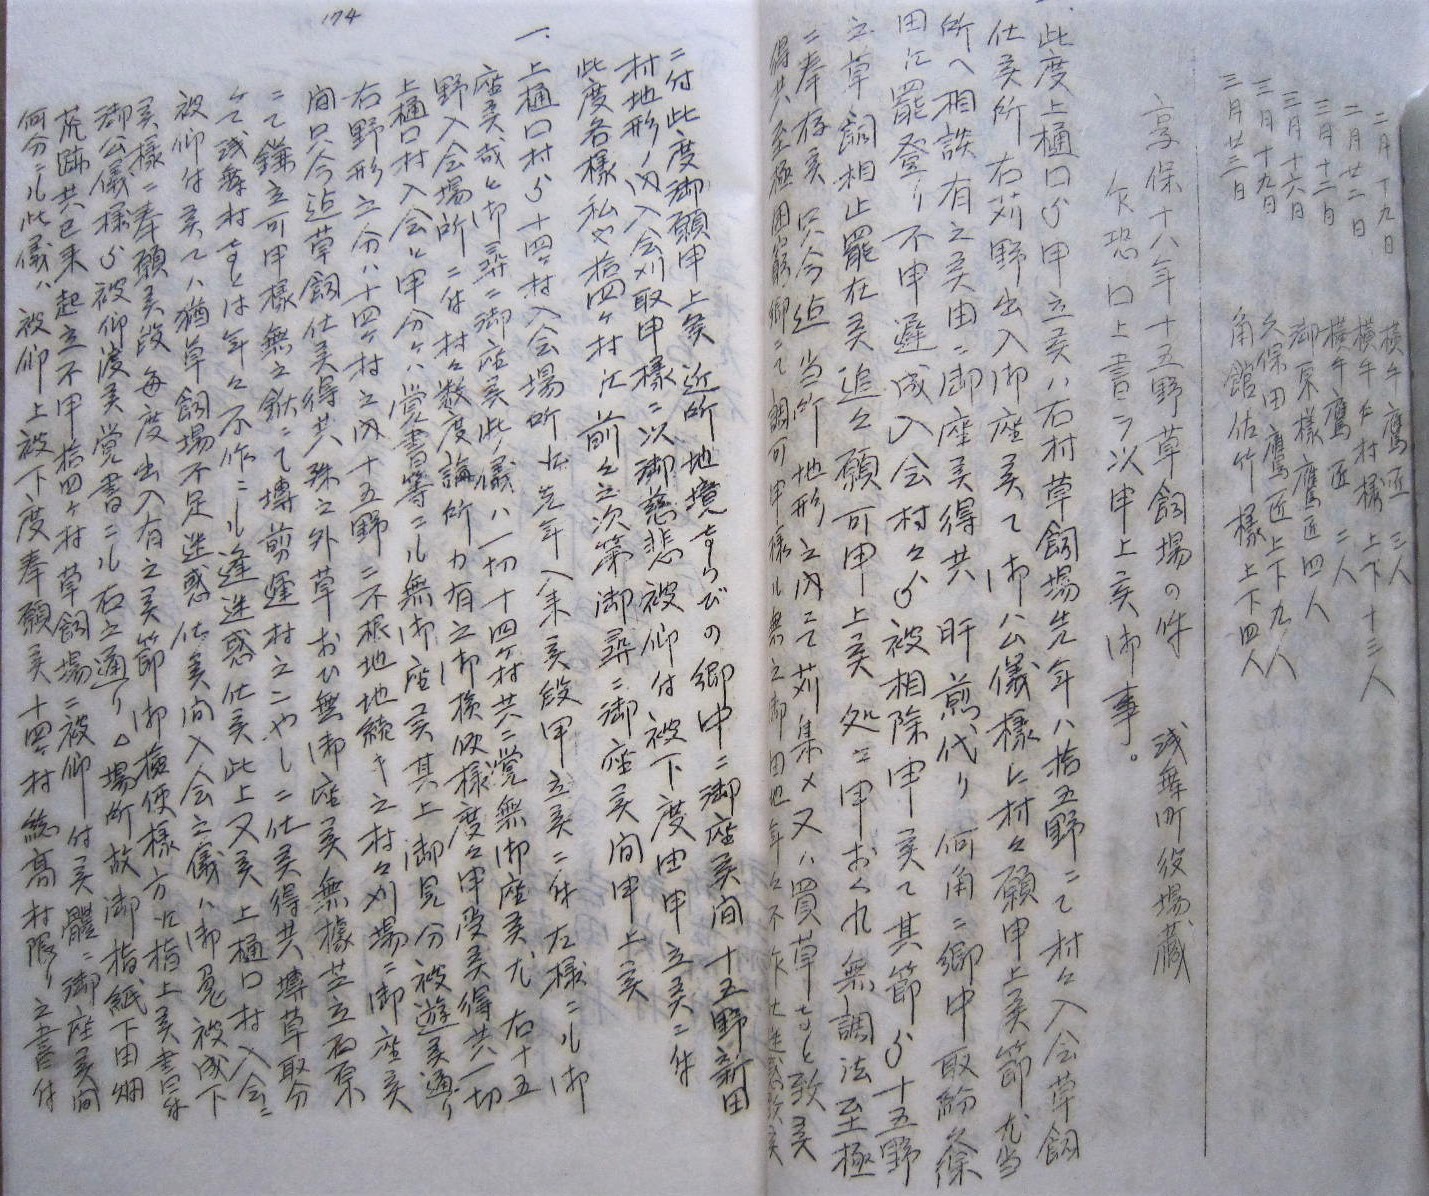 二月十九日 横手鷹匠 三人
二月廿二日 横手 村様 上下十三人
三月十二日 横手鷹匠 二人
三月十六日 御原様鷹匠四人
三月十九日 久保田鷹匠上下九人
三月廿三日 角館佐竹様上下四人
享保十八年十五野草飼場の件 浅舞町役場蔵
乍恐口上書ヲ以申上候御事。
一、此度上樋口ゟ申立候ハ右村草飼場先年ハ拾五野ニて村々入会草飼
仕候所右苅野出入御座候て御公儀様に村々願申上候節尤当
所へ相談有之候由ニ御座候得共肝煎代り何角ニ郷中取紛篠
田に罷登り不申遅成入会村々ゟ被相除申候て其節ゟ十五野
立草飼相止罷在候追々願可申上候処ニ申おくれ無調法至極
ニ奉存候只今迄当所地形之内ニて苅集メ又ハ買草など致候
得共至極困窮郷ニて調可申様ル無之御田地年々不作
ニ付此度御願申上候近所地境ならびの郷中ニ御座候間十五野新田
村地形ノ内入会刈取申様ニ以御慈悲被仰付被下度由申立候ニ付
此度各様私や拾四ケ村江前々之次第御尋ニ御座候間申上候
一、上樋口村ゟ十四ケ村入会場所先年入来候段申立候ニ付左様ニル御
座候哉と御尋ニ御座候此儀ハ一切十四ケ村共ニ覚無御座候尤右十五
野入会場所ニ付村々数度論所力有之御検使様度々申受候得共一切
上樋口村入会と申分ケ覚書等ニル無御座候其上御見分被遊候通り
右野形之分ハ十四ケ村之内十五野ニ不根地地続キ之村々刈場ニ御座候
間只今迄草飼仕候得共殊之外草おひ無御座候無據芝立
ニて鎌立可申様無之 ニて 剪遅村之 ニ仕候得共 草取分
ケて浅舞村なとは年々不作ニル逢迷惑仕候此上又候上樋口村入会ニ
被仰付候てハ猶草飼場不足迷惑仕候間入会之儀ハ御免被成下
候様ニ奉願候段毎度出入有之候節御検使様方江指上候書
御公儀様ゟ被仰渡候覚書ニル右之通り 場所故御指紙下田畑
荒跡共已来起立不申拾四ケ村草飼場ニ被仰付候體ニ御座候間
何分ニル此儀ハ被仰上被下度奉願候十四ケ村惣高村限り之書付
174